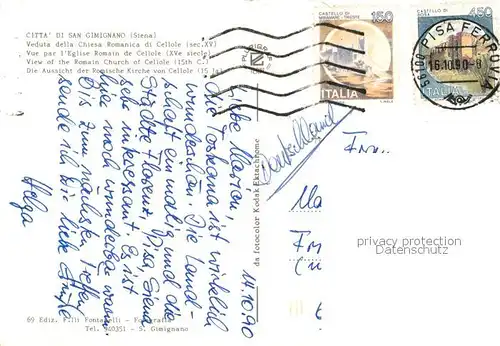 CITTA' DI SAN GIMIGNANO (Siena)
Veduta della Chiesa Romanica di Cellole (sec.XV)
Vue par l'Eglise Romain de Cellole (XVe siecle)
View of the Romain Church of Cellole (15th C.)
Die Aussicht der Romische Kirche von Cellole (15 Ja)
CASTELLO DI MIRAMARE - TRIESTE
150
ITALIA
450
ITALIA
56100 PISA FERROVIA
16.10.90-8
14.10.90
Liebe Marion,
die Toskana ist wirklich
wunderschön. Die Land-
schaft einmalig und die
Städte Florenz, Pisa, Siena
sehr interessant. Es ist
hier noch wunderbar warm.
Bis zum nächsten Treffen
sende ich Dir liebe Grüße
Helga
Deutschland
da fotocolor Kodak Ektachrome
Frau
Ma
privacy protection
www.ansichtskarten-center.de
89 Ediz. F.lli Fontanelli - Fotografia
Tel. 940351 - S. Gimignano